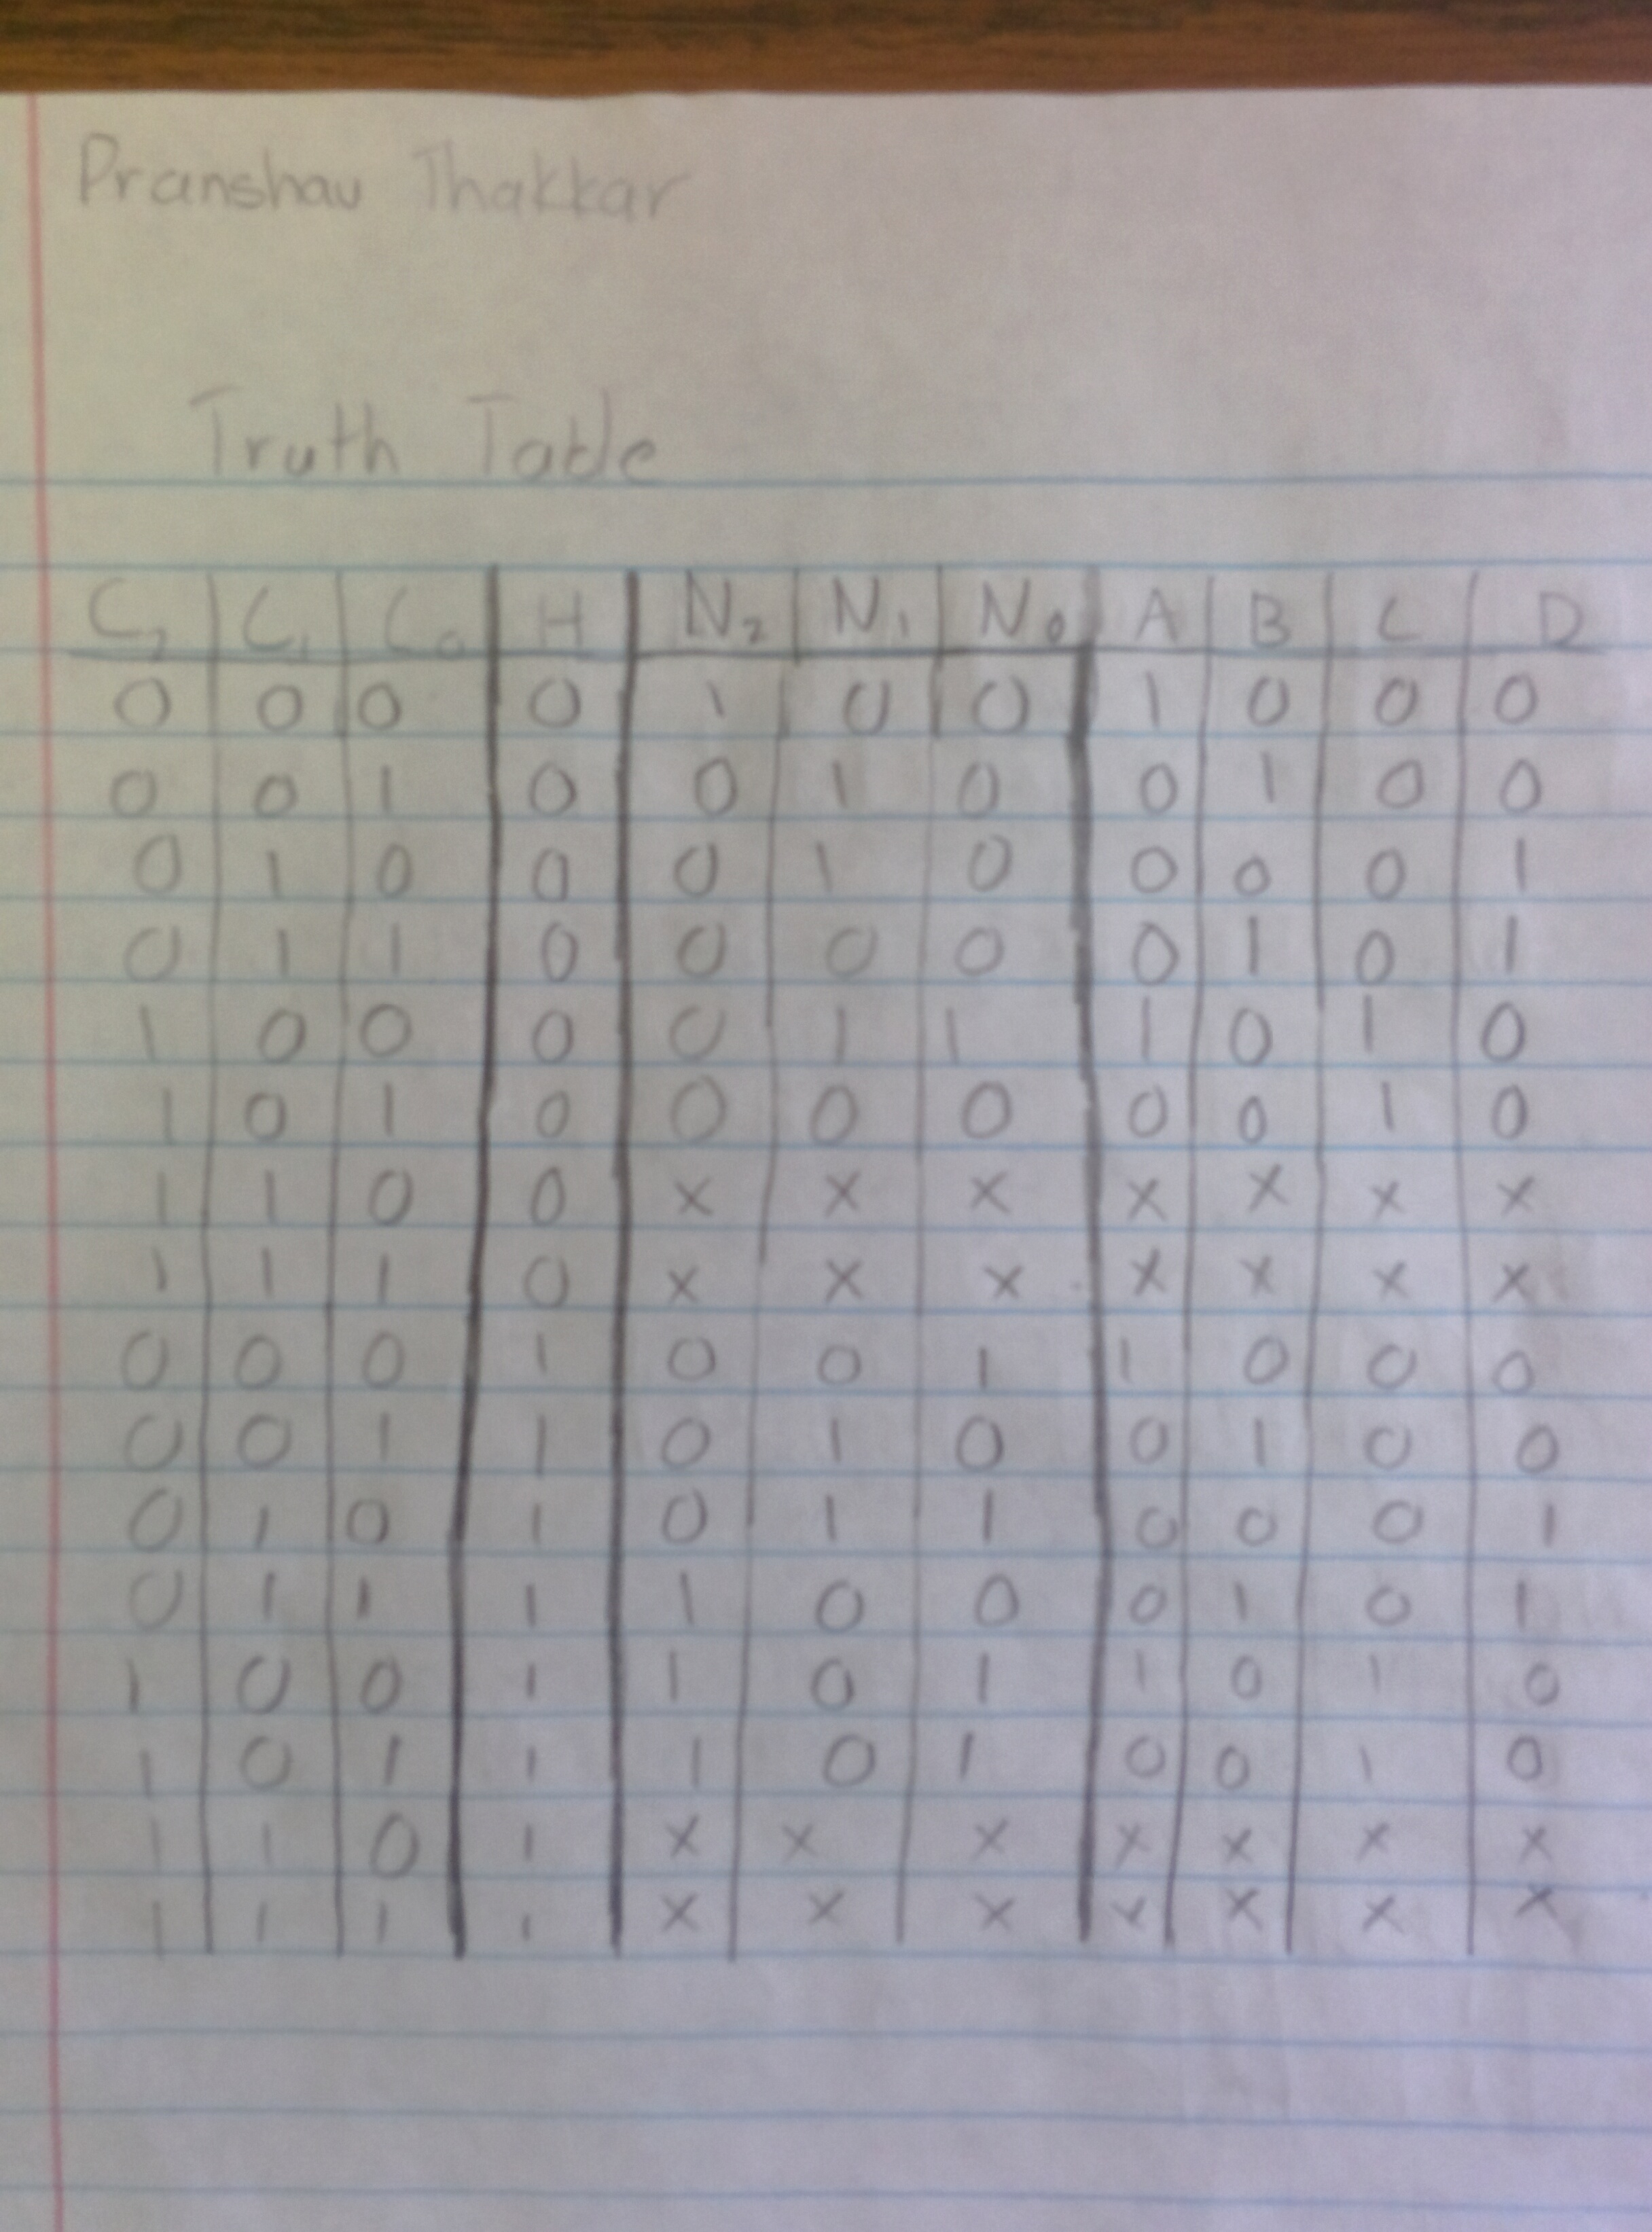 Pranshav Thakkar
Truth Table
C₂ C₁ C₀ H N₂ N₁ N₀ A B C D
0 0 0 0 1 0 0 1 0 0 0
0 0 1 0 0 1 0 0 1 0 0
0 1 0 0 0 1 0 0 0 0 1
0 1 1 0 0 0 0 0 1 0 1
1 0 0 0 0 1 1 1 0 1 0
1 0 1 0 0 0 0 0 0 1 0
1 1 0 0 x x x x x x x
1 1 1 0 x x x x x x x
0 0 0 1 0 0 1 1 0 0 0
0 0 1 1 0 1 0 0 1 0 0
0 1 0 1 0 1 1 0 0 0 1
0 1 1 1 1 0 0 0 1 0 1
1 0 0 1 1 0 1 1 0 1 0
1 0 1 1 1 0 1 0 0 1 0
1 1 0 1 x x x x x x x
1 1 1 1 x x x x x x x